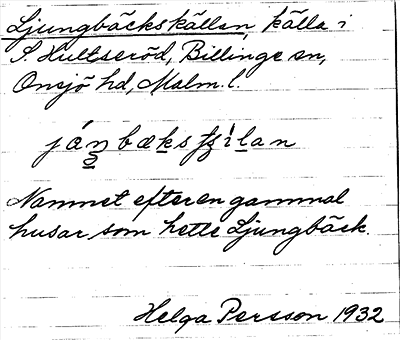 Ljungbäckskällan, källa i
S. Hultseröd, Billinge sn,
Onsjö hd, Malm. l.
Namnet efter en gammal
husar som hette Ljungbäck.
Helga Persson 1932